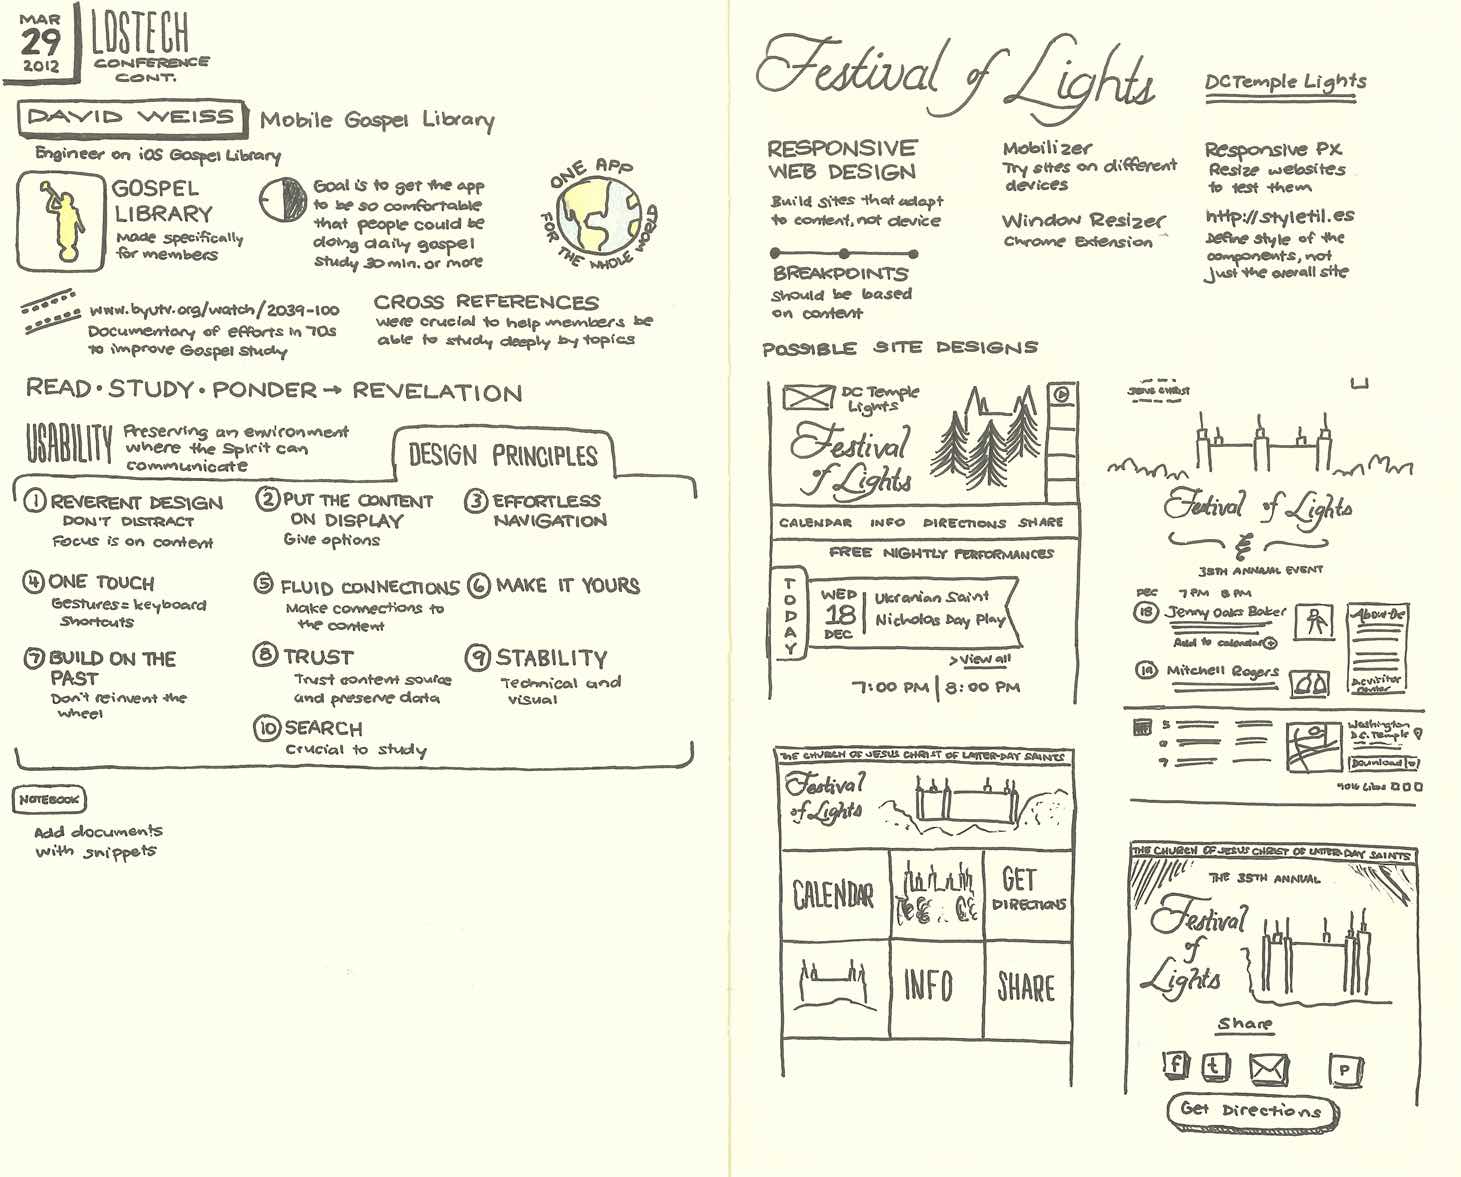 MAR
29
2012
LDSTECH
CONFERENCE
CONT.
DAVID WEISS
Mobile Gospel Library
Engineer on iOS Gospel Library
GOSPEL
LIBRARY
Made specifically
for members
Goal is to get the app
to be so comfortable
that people could be
doing daily gospel
study 30 min. or more
ONE APP
FOR THE WHOLE WORLD
www.byutv.org/watch/2039-100
Documentary of efforts in 70s
to improve Gospel Study
CROSS REFERENCES
were crucial to help members be
able to study deeply by topics
READ • STUDY • PONDER → REVELATION
USABILITY
Preserving an environment
where the Spirit can
communicate
DESIGN PRINCIPLES
1 REVERENT DESIGN
DON'T DISTRACT
Focus is on content
2 PUT THE CONTENT
ON DISPLAY
Give options
3 EFFORTLESS
NAVIGATION
4 ONE TOUCH
Gestures = keyboard
Shortcuts
5 FLUID CONNECTIONS
Make connections to
the content
6 MAKE IT YOURS
7 BUILD ON THE
PAST
Don't reinvent the
wheel
8 TRUST
Trust content source
and preserve data
9 STABILITY
Technical and
visual
10 SEARCH
Crucial to study
NOTEBOOK
Add documents
with snippets
Festival of Lights
DCTemple Lights
RESPONSIVE
WEB DESIGN
Build sites that adapt
to content, not device
BREAKPOINTS
Should be based
on content
Mobilizer
Try sites on different
devices
Window Resizer
Chrome Extension
Responsive PX
Resize websites
to test them
http://styletil.es
Define style of the
components, not
just the overall site
POSSIBLE SITE DESIGNS
DC Temple
Lights
Festival
of Lights
CALENDAR INFO DIRECTIONS SHARE
FREE NIGHTLY PERFORMANCES
TODAY
WED
18
DEC
Ukranian Saint
Nicholas Day Play
> View all
7:00 PM | 8:00 PM
JESUS CHRIST
Festival of Lights
35TH ANNUAL EVENT
DEC 7 PM 8 PM
18 Jenny Oaks Baker
Add to calendar +
19 Mitchell Rogers
About the
DC Visitor
Center
Washington
D.C. Temple
Download
Likes
THE CHURCH OF JESUS CHRIST OF LATTER-DAY SAINTS
Festival
of Lights
CALENDAR
GET
DIRECTIONS
INFO
SHARE
THE CHURCH OF JESUS CHRIST OF LATTER-DAY SAINTS
THE 35TH ANNUAL
Festival
of
Lights
Share
f t P
Get Directions